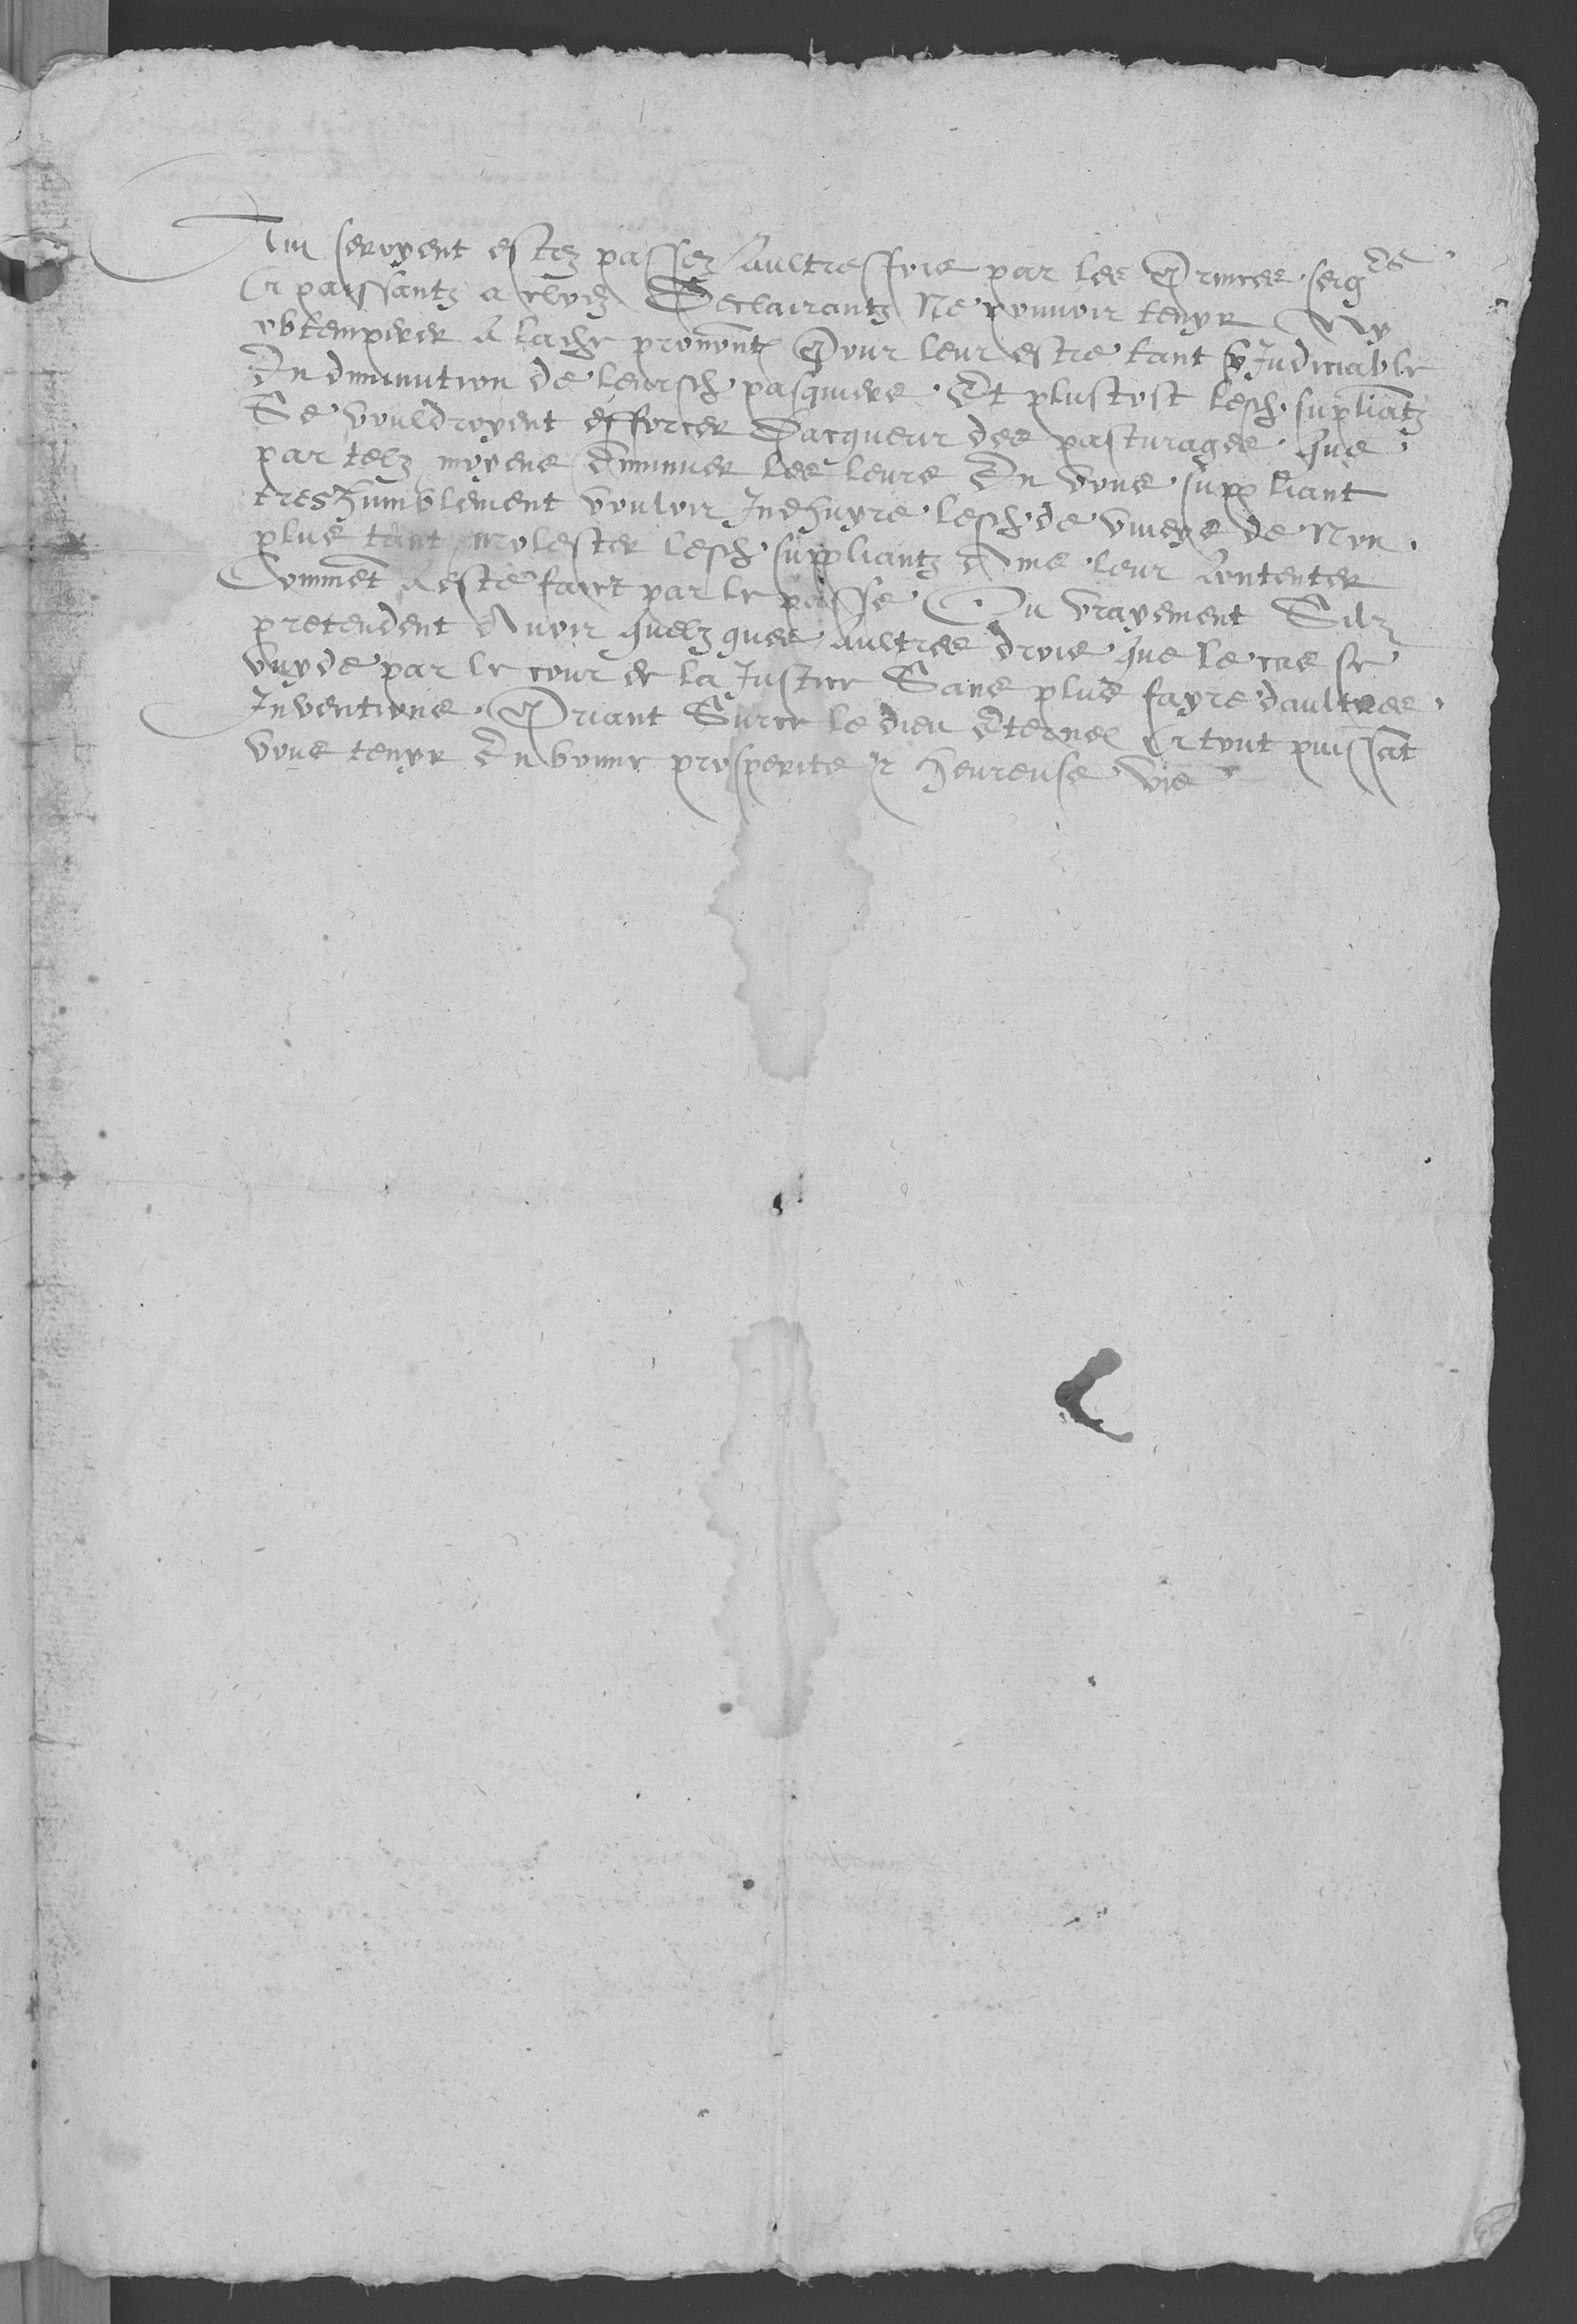 Qui seroyent estez passez aultresfois par les Princes seigrs
Et paissantz a clodz Declairantz Ne pouvoir tenyr Ny
obtemperer a lache prononcé Pour leur estre tant p̱judiciable
En diminution de leursd. pasquiers. Et plustost lesd. supliātz
Se vouldroyent efforcer Dacquerir des pasturages. Que
par telz moyens diminuer les leurs En vous suppliant
treshumblement vouloir Indhuyre lesd. de vineys de Non.
plus tant molester lesd. suppliantz Ains leur contenter
Commēt a este faict par le passe. Ou vrayement Silz
pretendent Avoir quelzques aultres drois que le cas se
vuyde par le cour de la Justice Sans plus fayre daultres.
Inventions. Priant Surce le dieu Eternel Et tout puissāt
vous tenyr En bonne prosperite & heureuse vie